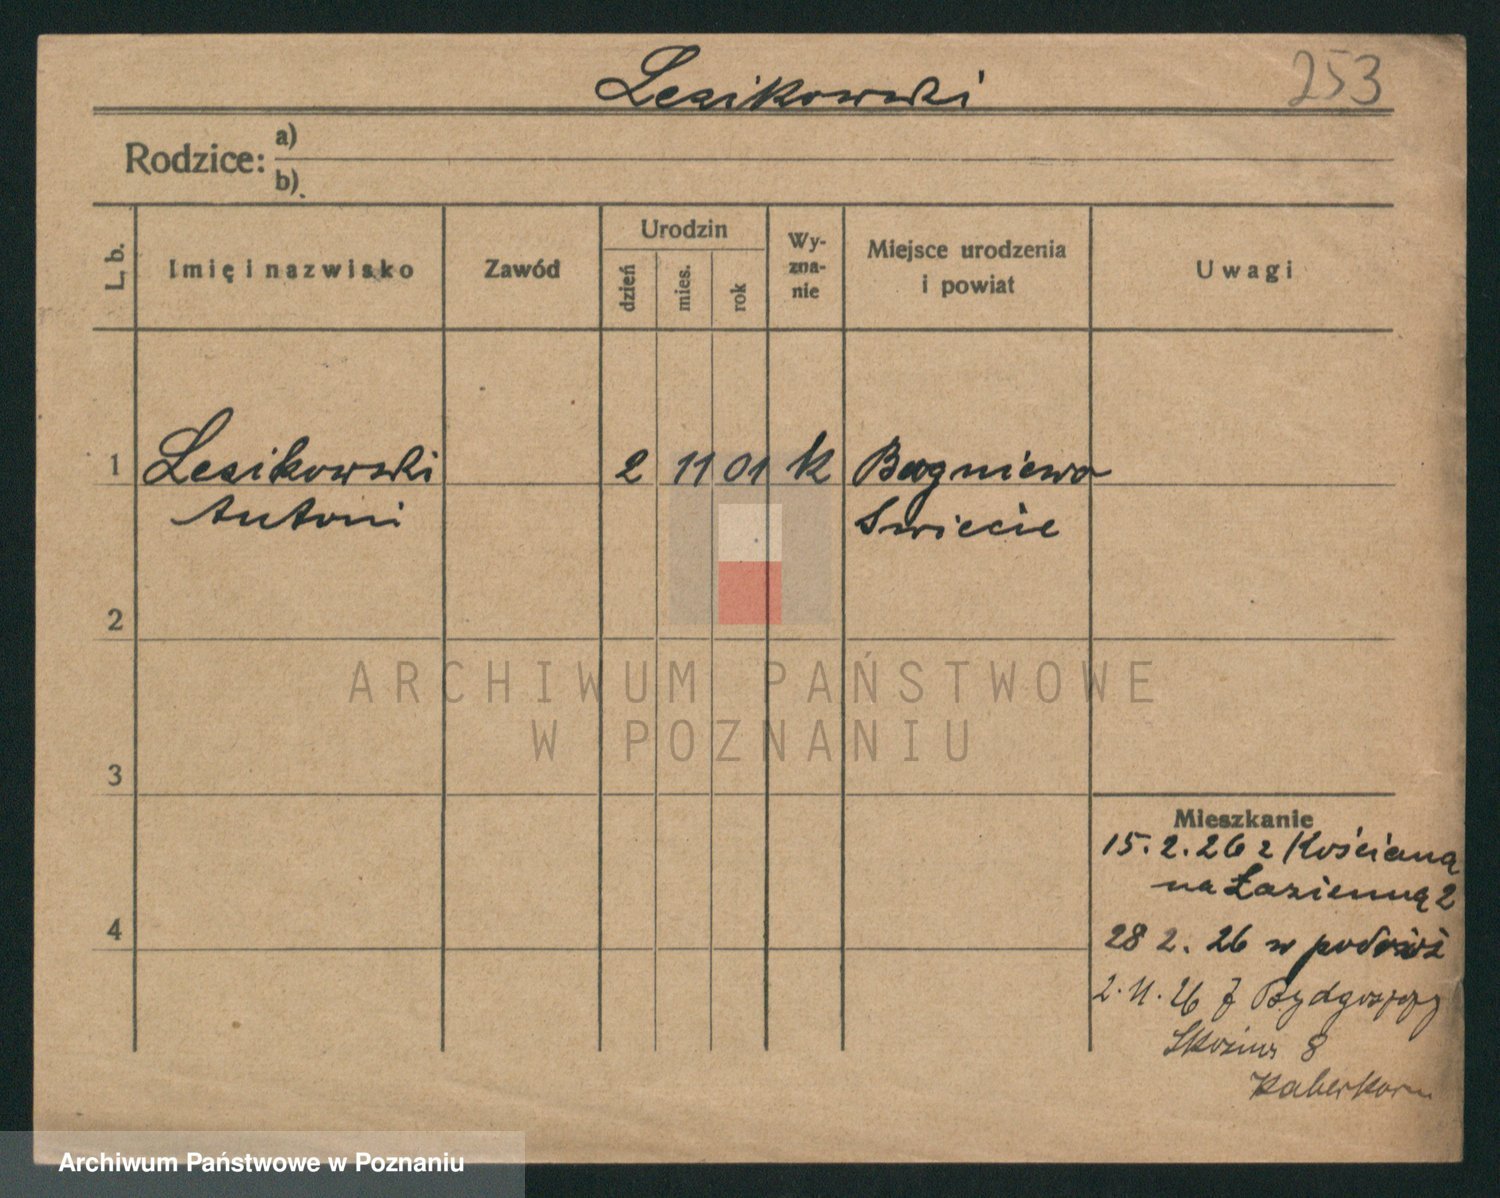 Lesikowski 253
Rodzice: a)
b)
L. b.
Imię i nazwisko
Zawód
Urodzin
dzień
mies.
rok
Wy-
zna-
nie
Miejsce urodzenia
i powiat
Uwagi
1 Lesikowski 2 11 01 k Bagniewo
Antoni Swiecie
2
3
4
Mieszkanie
15.2.26 z Kościaną
na Łazienną 2
28 2. 26 w podróż
2.11.26 z Bydgoszczy
8
Haberkorn
ARCHIWUM PAŃSTWOWE
W POZNANIU
Archiwum Państwowe w Poznaniu